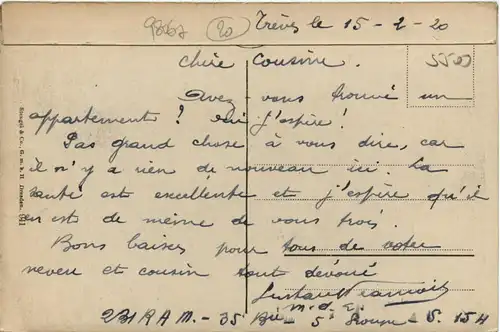 98067 20 Trèves le 15-2-20
5500
Chère Cousine.
Avez-vous trouvé un
appartement? oui j'espère!
Pas grand chose à vous dire, car
il n'y a rien de nouveau ici. La
santé est excellente et j'espère qu'il
en est de même de vous trois.
Bons baises pour tous de votre
neveu et cousin tout dévoué
Stengel & Co., G. m. b. H. Dresden.
231 RAM - 35 Bie - 5 S.P. 154